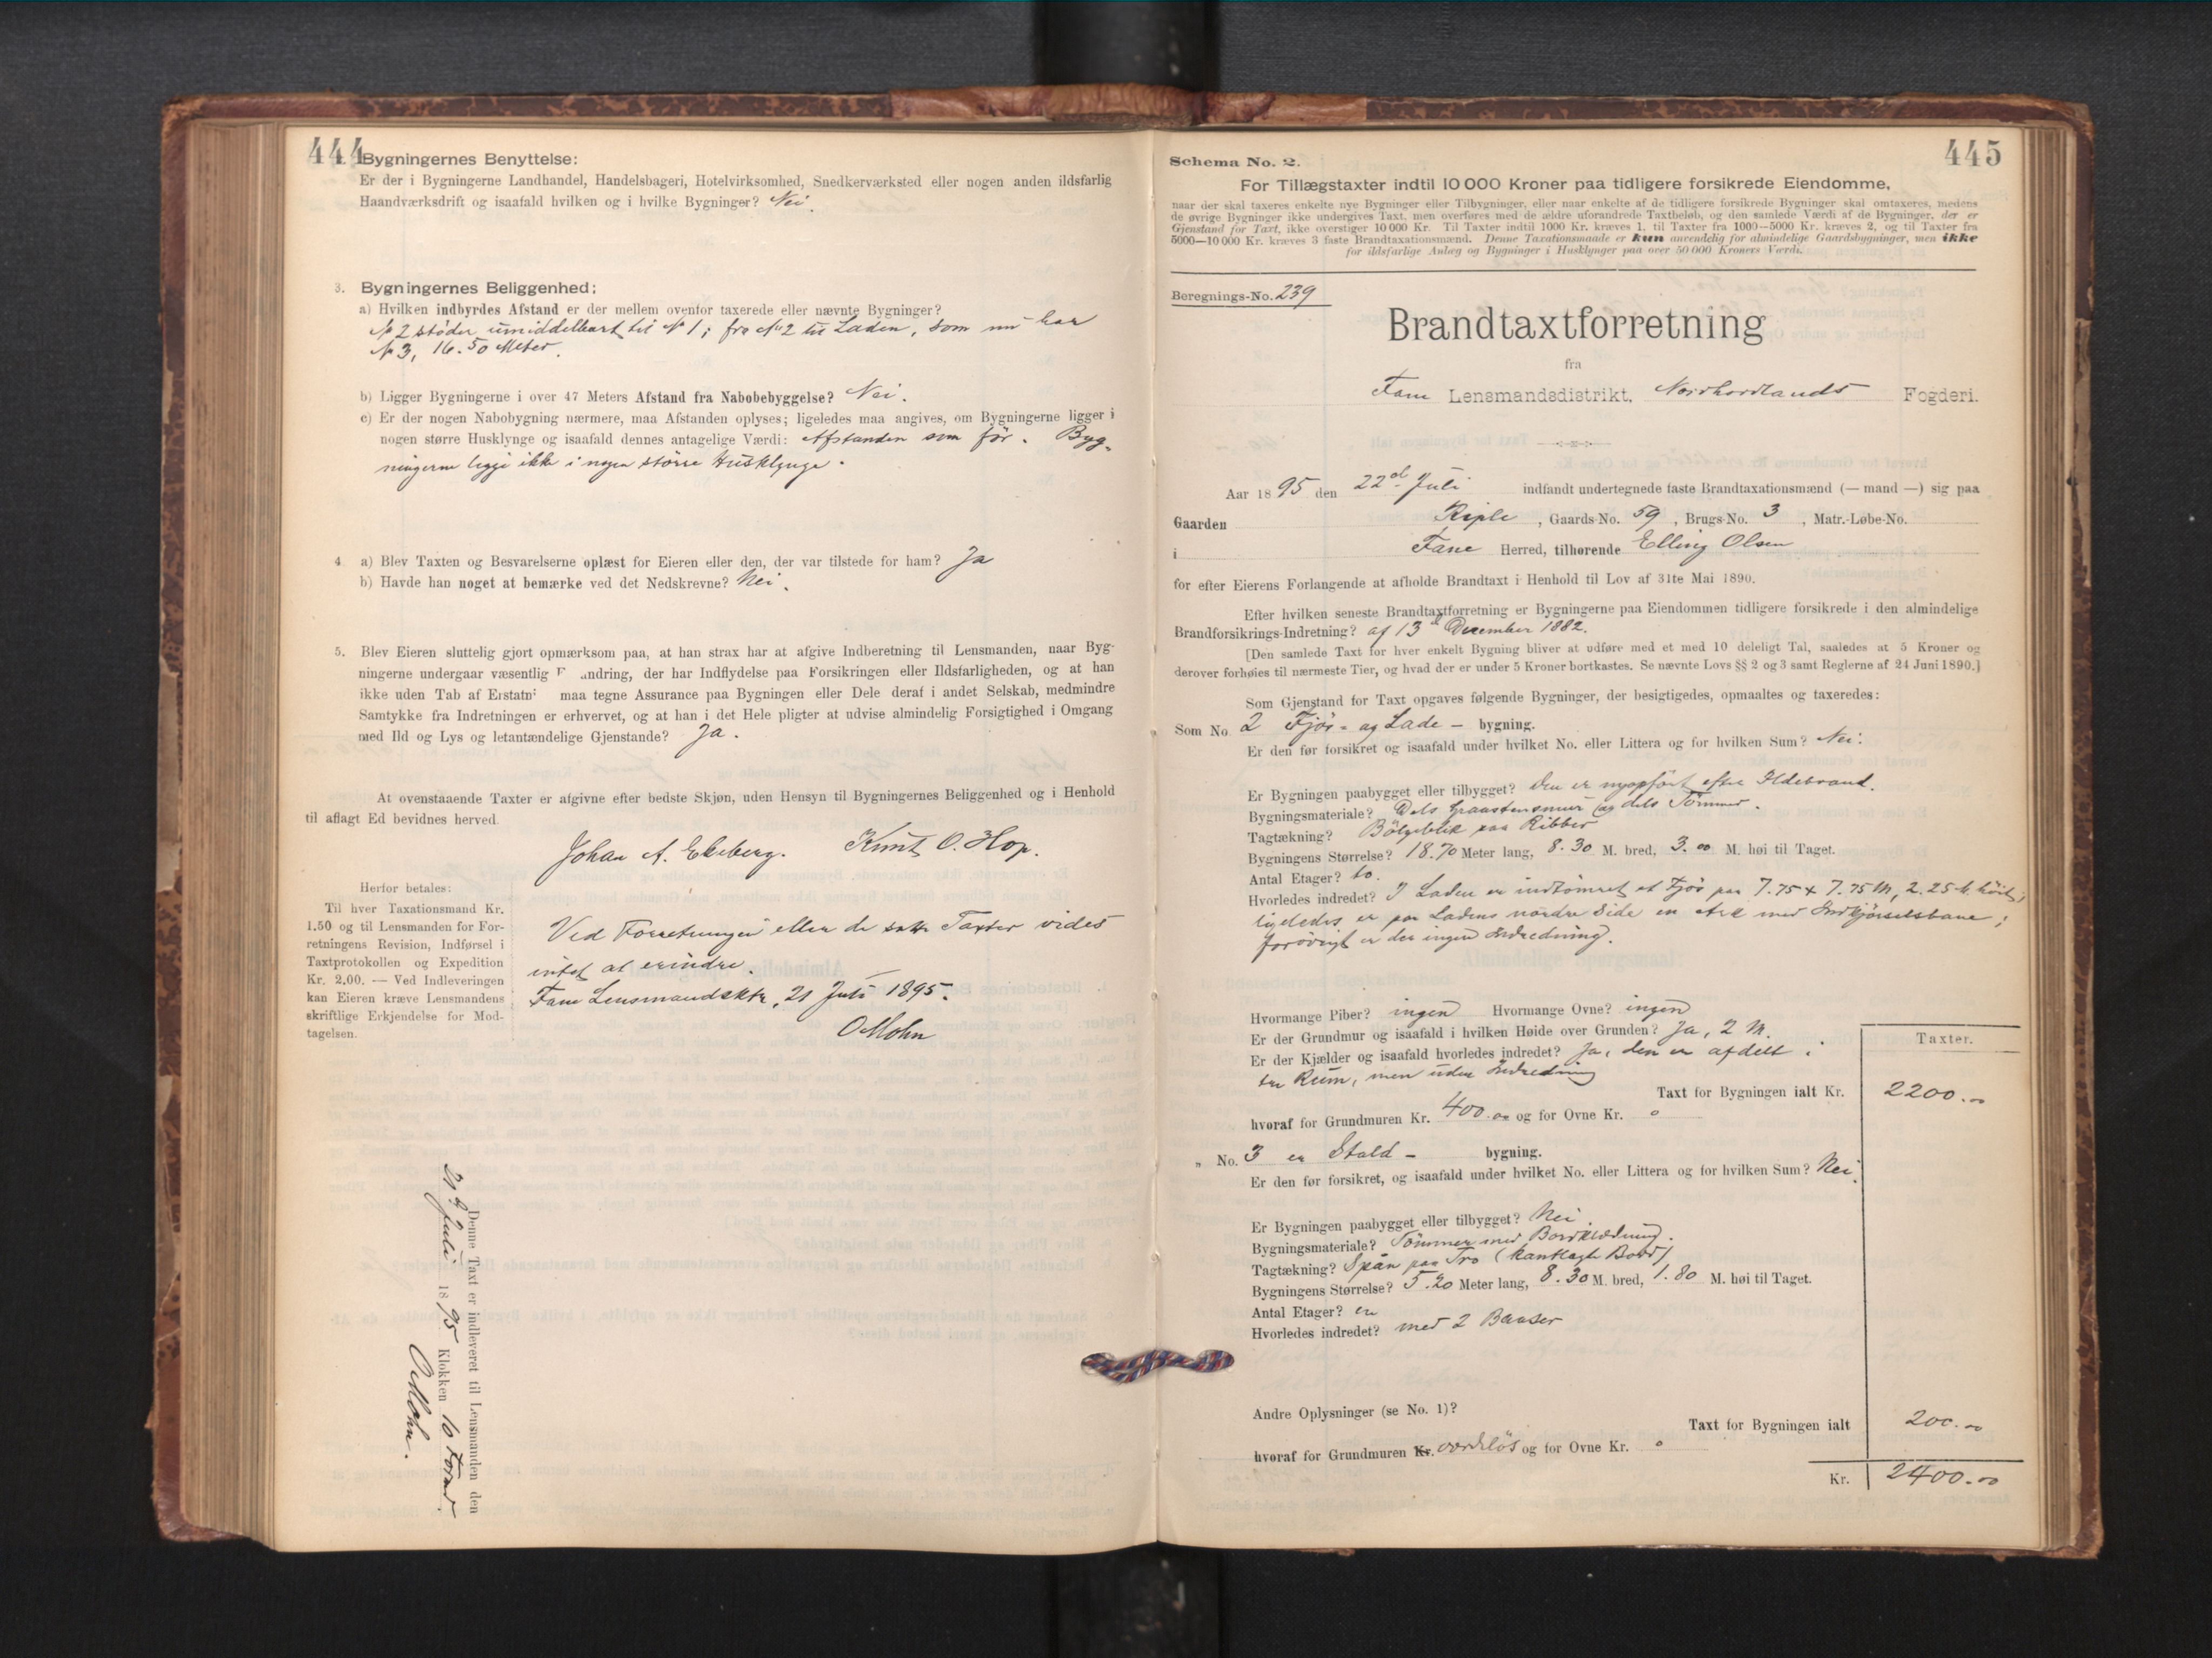 444
Bygningernes Benyttelse:
Er der i Bygningerne Landhandel, Handelsbageri, Hotelvirksomhed, Snedkerværksted eller nogen anden ildsfarlig
Haandværksdrift og isaafald hvilken og i hvilke Bygninger? Nei.
3. Bygningernes Beliggenhed:
a) Hvilken indbyrdes Afstand er der mellem ovenfor taxerede eller nævnte Bygninger?
No 2 støder umiddelbart til No 1; fra No 2 til Laden, som nu har
No 3, 16.50 Meter.
b) Ligger Bygningerne i over 47 Meters Afstand fra Nabobebyggelse? Nei.
c) Er der nogen Nabobygning nærmere, maa Afstanden oplyses; ligeledes maa angives, om Bygningerne ligger i
nogen større Husklynge og isaafald dennes antagelige Værdi: Afstanden som før. Byg-
ningerne ligge ikke i nogen større Husklynge.
4. a) Blev Taxten og Besvarelserne oplæst for Eieren eller den, der var tilstede for ham? Ja
b) Havde han noget at bemærke ved det Nedskrevne? Nei.
5. Blev Eieren sluttelig gjort opmærksom paa, at han strax har at afgive Indberetning til Lensmanden, naar Byg-
ningerne undergaar væsentlig F andring, der har Indflydelse paa Forsikringen eller Ildsfarligheden, og at han
ikke uden Tab af Erstatn maa tegne Assurance paa Bygningen eller Dele deraf i andet Selskab, medmindre
Samtykke fra Indretningen er erhvervet, og at han i det Hele pligter at udvise almindelig Forsigtighed i Omgang
med Ild og Lys og letantændelige Gjenstande? Ja.
At ovenstaaende Taxter er afgivne efter bedste Skjøn, uden Hensyn til Bygningernes Beliggenhed og i Henhold
til aflagt Ed bevidnes herved.
Johan A. Ekeberg. Knut O. Hop.
Herfor betales:
Til hver Taxationsmand Kr.
1.50 og til Lensmanden for For-
retningens Revision, Indførsel i
Taxtprotokollen og Expedition
Kr. 2.00. — Ved Indleveringen
kan Eieren kræve Lensmandens
skriftlige Erkjendelse for Mod-
tagelsen.
Ved Forretningen eller de satte Taxter vides
intet at erindre.
Fane Lensmandsktr, 21 Juli 1895.
O Mohn
Denne Taxt er indleveret til Lensmanden den
21de Juli 1895 Klokken 10 Formd.
O Mohn.
445
Schema No. 2.
For Tillægstaxter indtil 10 000 Kroner paa tidligere forsikrede Eiendomme,
naar der skal taxeres enkelte nye Bygninger eller Tilbygninger, eller naar enkelte af de tidligere forsikrede Bygninger skal omtaxeres, medens
de øvrige Bygninger ikke undergives Taxt, men overføres med de ældre uforandrede Taxtbeløb, og den samlede Værdi af de Bygninger, der er
Gjenstand for Taxt, ikke overstiger 10 000 Kr. Til Taxter indtil 1000 Kr. kræves 1, til Taxter fra 1000—5000 Kr. kræves 2, og til Taxter fra
5000—10 000 Kr. kræves 3 faste Brandtaxationsmænd. Denne Taxationsmaade er kun anvendelig for almindelige Gaardsbygninger, men ikke
for ildsfarlige Anlæg og Bygninger i Husklynger paa over 50 000 Kroners Værdi.
Beregnings-No. 239
Brandtaxtforretning
fra
Fane Lensmandsdistrikt, Nordhordlands Fogderi.
Aar 1895 den 22de Juli indfandt undertegnede faste Brandtaxationsmænd (— mand —) sig paa
Gaarden Riple, Gaards-No. 59, Brugs-No. 3, Matr.-Løbe-No.
i Fane Herred, tilhørende Elling Olsen
for efter Eierens Forlangende at afholde Brandtaxt i Henhold til Lov af 31te Mai 1890.
Efter hvilken seneste Brandtaxtforretning er Bygningerne paa Eiendommen tidligere forsikrede i den almindelige
Brandforsikrings-Indretning? af 13de December 1882.
[Den samlede Taxt for hver enkelt Bygning bliver at udføre med et med 10 deleligt Tal, saaledes at 5 Kroner og
derover forhøies til nærmeste Tier, og hvad der er under 5 Kroner bortkastes. Se nævnte Lovs §§ 2 og 3 samt Reglerne af 24 Juni 1890.]
Som Gjenstand for Taxt opgaves følgende Bygninger, der besigtigedes, opmaaltes og taxeredes:
Som No. 2 Fjøs- og Lade- bygning.
Er den før forsikret og isaafald under hvilket No. eller Littera og for hvilken Sum? Nei.
Er Bygningen paabygget eller tilbygget? Den er nyopført efter Ildebrand.
Bygningsmateriale? Dels Graastensmur og dels Tømmer.
Tagtækning? Bølgeblik paa Ribber
Bygningens Størrelse? 18.70 Meter lang, 8.30 M. bred, 3.00 M. høi til Taget.
Antal Etager? to.
Hvorledes indredet? I Laden er indtømret et Fjøs paa 7.75 x 7.75 M, 2.25 M. høit;
ligeledes er paa Ladens nordre Side en Ark med Indkjørselsbane;
forøvrigt er der ingen Indredning.
Hvormange Piber? ingen Hvormange Ovne? ingen
Er der Grundmur og isaafald i hvilken Høide over Grunden? Ja, 2 M.
Er der Kjælder og isaafald hvorledes indredet? Ja, den er afdelt i
to Rum, men uden Indredning
Taxter.
Taxt for Bygningen ialt Kr. 2200.00
hvoraf for Grundmuren Kr. 400.00 og for Ovne Kr. 0
„ No. 3 en Stald- bygning.
Er den før forsikret, og isaafald under hvilket No. eller Littera og for hvilken Sum? Nei.
Er Bygningen paabygget eller tilbygget? Nei.
Bygningsmateriale? Tømmer med Bordklædning.
Tagtækning? Spån paa Tro (kantlagte Bord)
Bygningens Størrelse? 5.20 Meter lang, 8.30 M. bred, 1.80 M. høi til Taget.
Antal Etager? en
Hvorledes indredet? med 2 Baaser
Andre Oplysninger (se No. 1)?
Taxt for Bygningen ialt 200.00
hvoraf for Grundmuren Kr. værdiløs og for Ovne Kr. 0
Kr. 2400.00